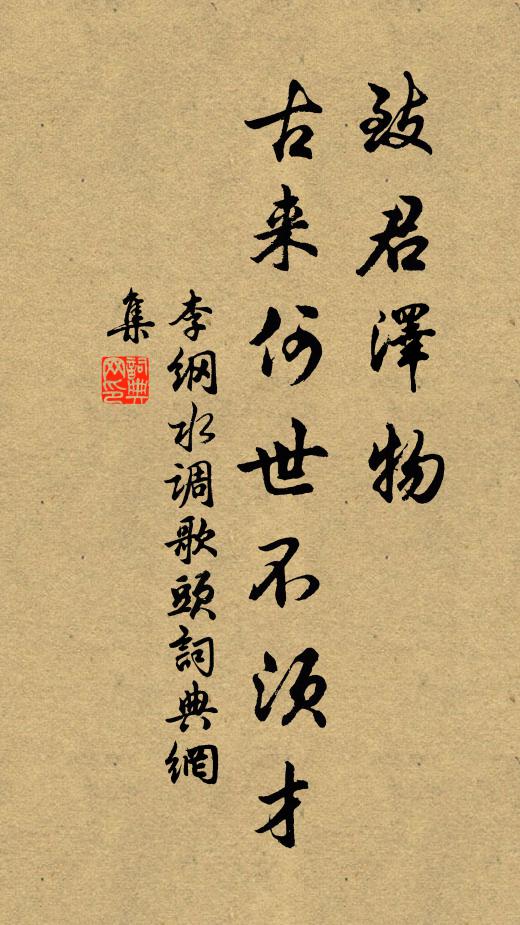 致君澤物
古来何世不須才
李纲水调歌頭詞典網
集
詞典
网印